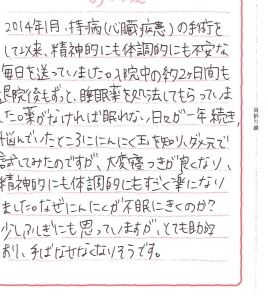 2014年1月、持病(心臓疾患)の手術を
して以来、精神的にも体調的にも不安な
毎日を送っていました。入院中の約2ヶ月間も
退院後もずっと、睡眠薬を処方してもらっていま
した。薬がなければ眠れない日々が一年続き、
悩んでいたところににんにく玉を知り、ダメ元で
試してみたのですが、大変寝つきが良くなり、
精神的にも体調的にもすごく楽になり
ました。なぜにんにくが不眠にきくのか?
少しふしぎにも思っていますが、とても助かって
おり、手ばなせなくなりそうです。